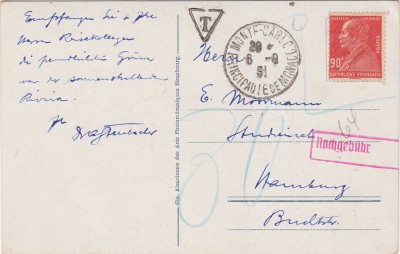 Empfangen Sie u. Ihre
Herren Reisekollegen
die freundlichsten Grüsse
von der sonnenstrahlenden
Riviera.
Ihr
T
MONTE-CARLO
PRINCIPAUTÉ DE MONACO
6 -9
31
90c
POSTES
RÉPUBLIQUE FRANÇAISE
Herrn
E. Moormann
Studienrat
Hamburg
Nachgebühr
Cie. Alsacienne des Arts Photomécaniques Strasbourg.